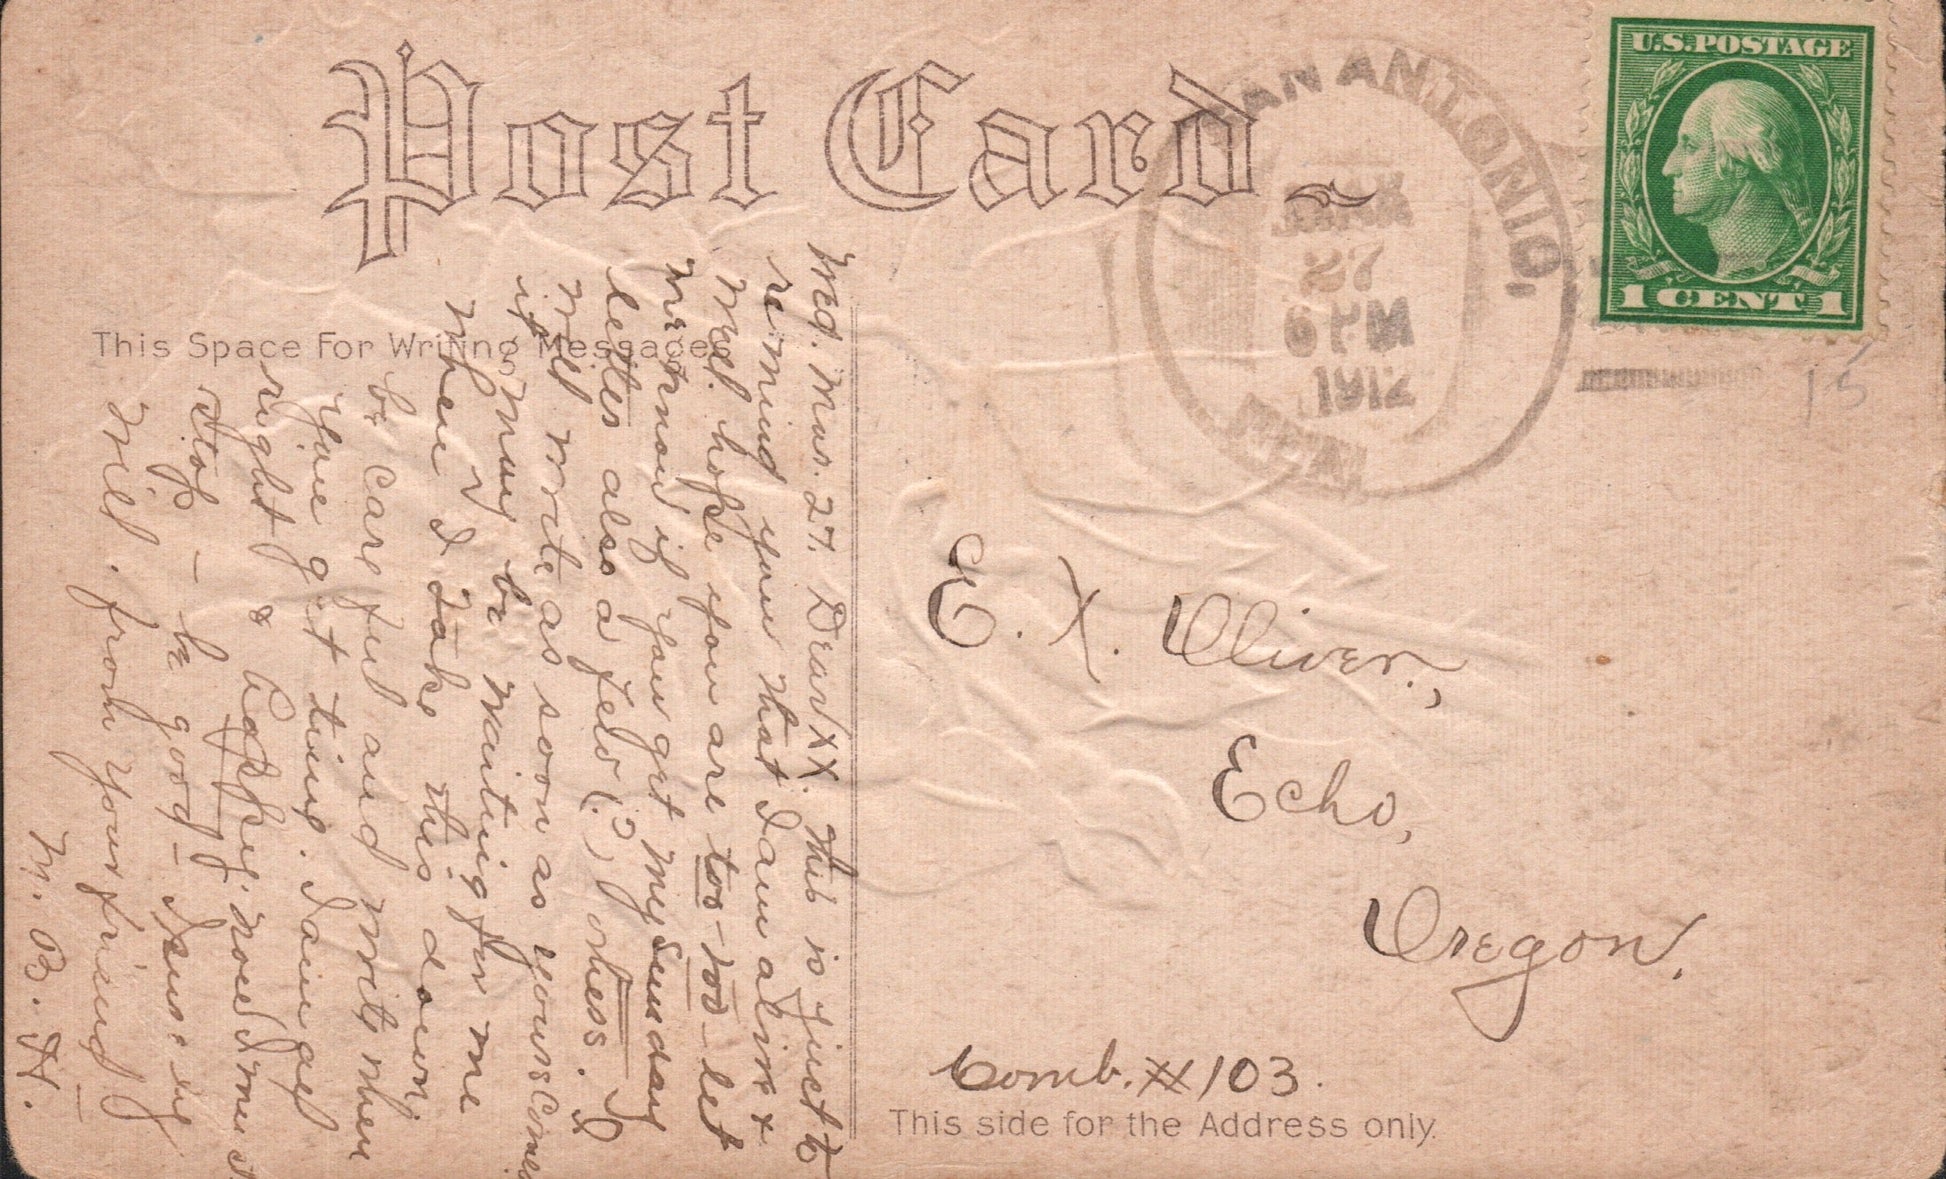 Post Card
U.S. POSTAGE
1 CENT 1
SAN ANTONIO,
MAR
27
6 PM
1912
TEX.
15
This Space For Writing Messages
Wed. Mar. 27. Dear XX. This is just to
remind you that I am alive &
well. hope you are too-too- let
me know if you get my Sunday
letter also a few (?) others. I
will write as soon as yours comes
it may be waiting for me
when I take this down.
be careful and write when
you get time. I am all
right & happy. now I must
stop - be good -
Will. from your friend
M. B. H.
E. X. Oliver,
Echo,
Oregon.
Comb. # 103.
This side for the Address only.